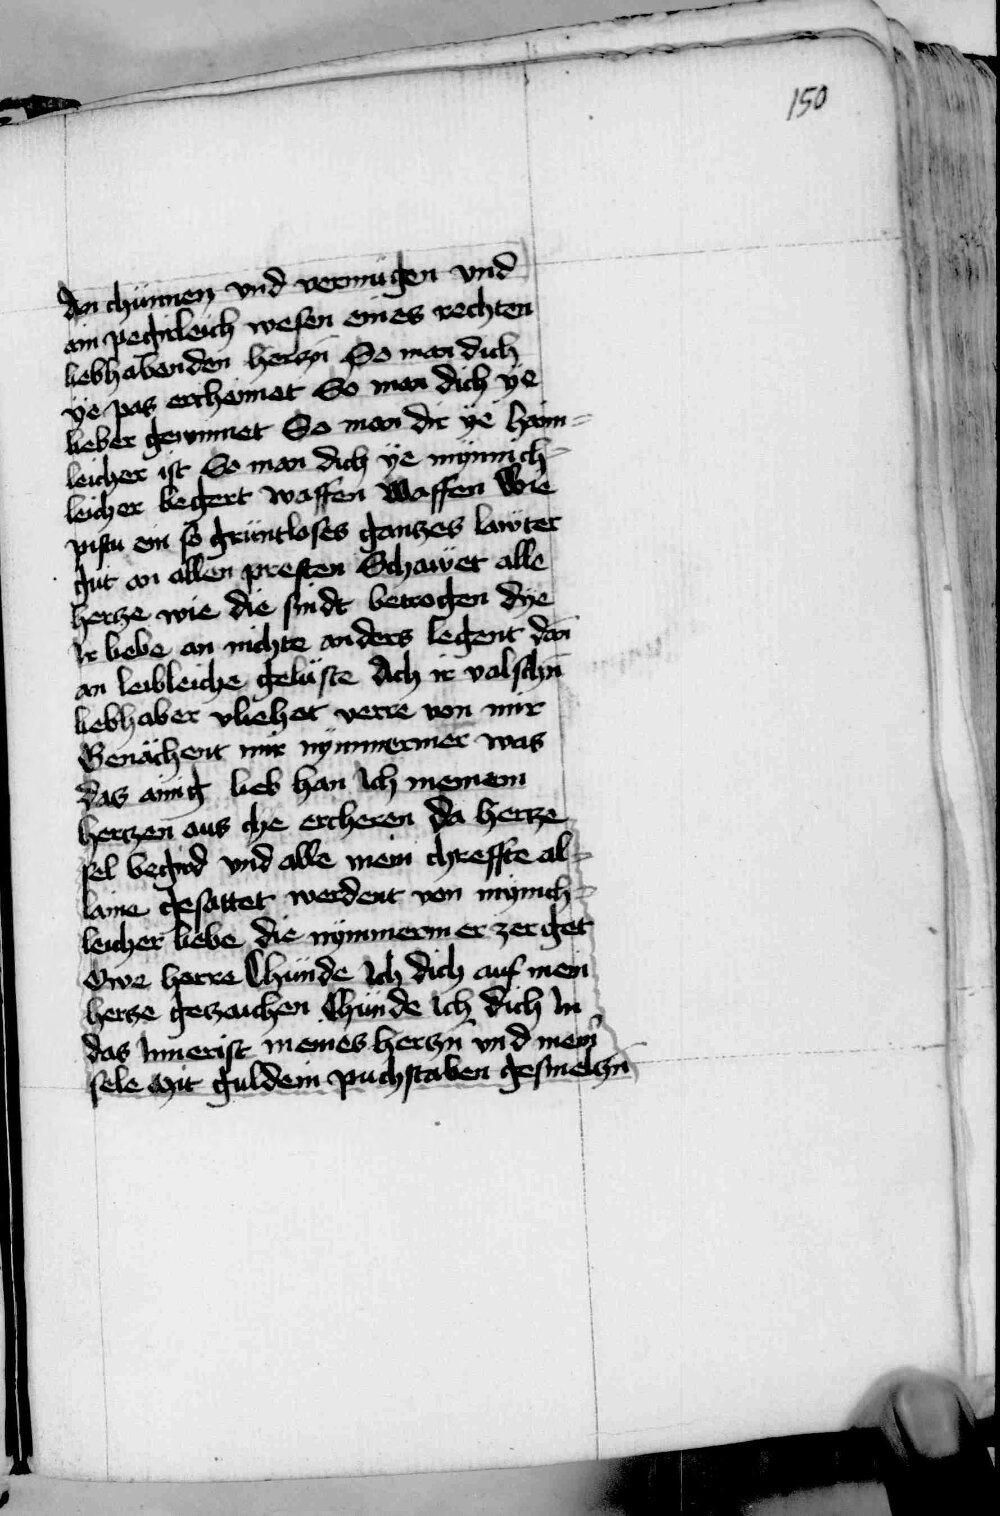 150
An chünnen vnd vermügen vnd
ain pegirleich wesen eines rechten
liebhabenden herczn So man dich
ÿe pas erchennet So man dich ÿe
lieber gewinnet So man dir ÿe haim=
leicher ist So man dich ÿe mÿnnich=
leicher begert waffen Waffen Wie
pistu ein so grüntloses gantzes lawter
gut an allen presten Schawet alle
hercze wie die sindt betrogen dÿe
Ir liebe an nichte anders legent dan
an leibleiche gelüste Ach ir valschn
liebhaber vliehet verre von mir
Genächent mir nÿmmermer was
das ainig lieb han Ich meinem
herczen aus che ercheren da hercze
sel begird vnd alle mein chreffte al=
laine gesattet werdent von mÿnich=
leicher liebe die nÿmmermer zerget
Owe herre Chünde Ich dich auf mein
hercze geczaichen Chünde Ich dich In
das Innerist meines herczn vnd mein
sele Mit guldein puchstaben gesmelczn